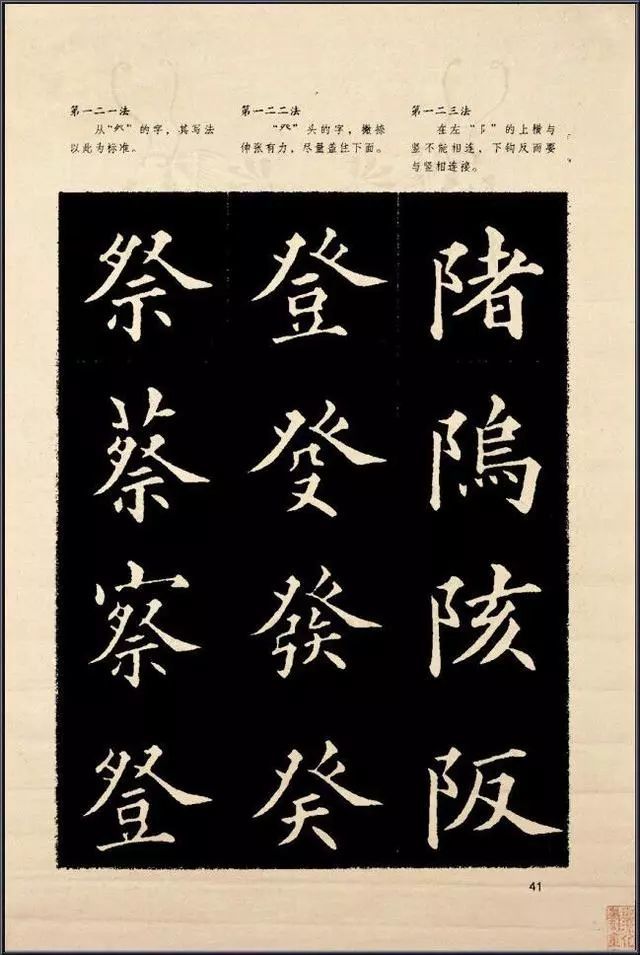 第一二一法
从“癶”的字，其写法
以此为标准。
第一二二法
“癶”头的字，撇捺
伸张有力，尽量盖住下面。
第一二三法
在左“阝”的上横与
竖不能相连，下钩反而要
与竖相连接。
祭 登 陼
蔡 發 隖
察 發 陔
登 癸 阪
41